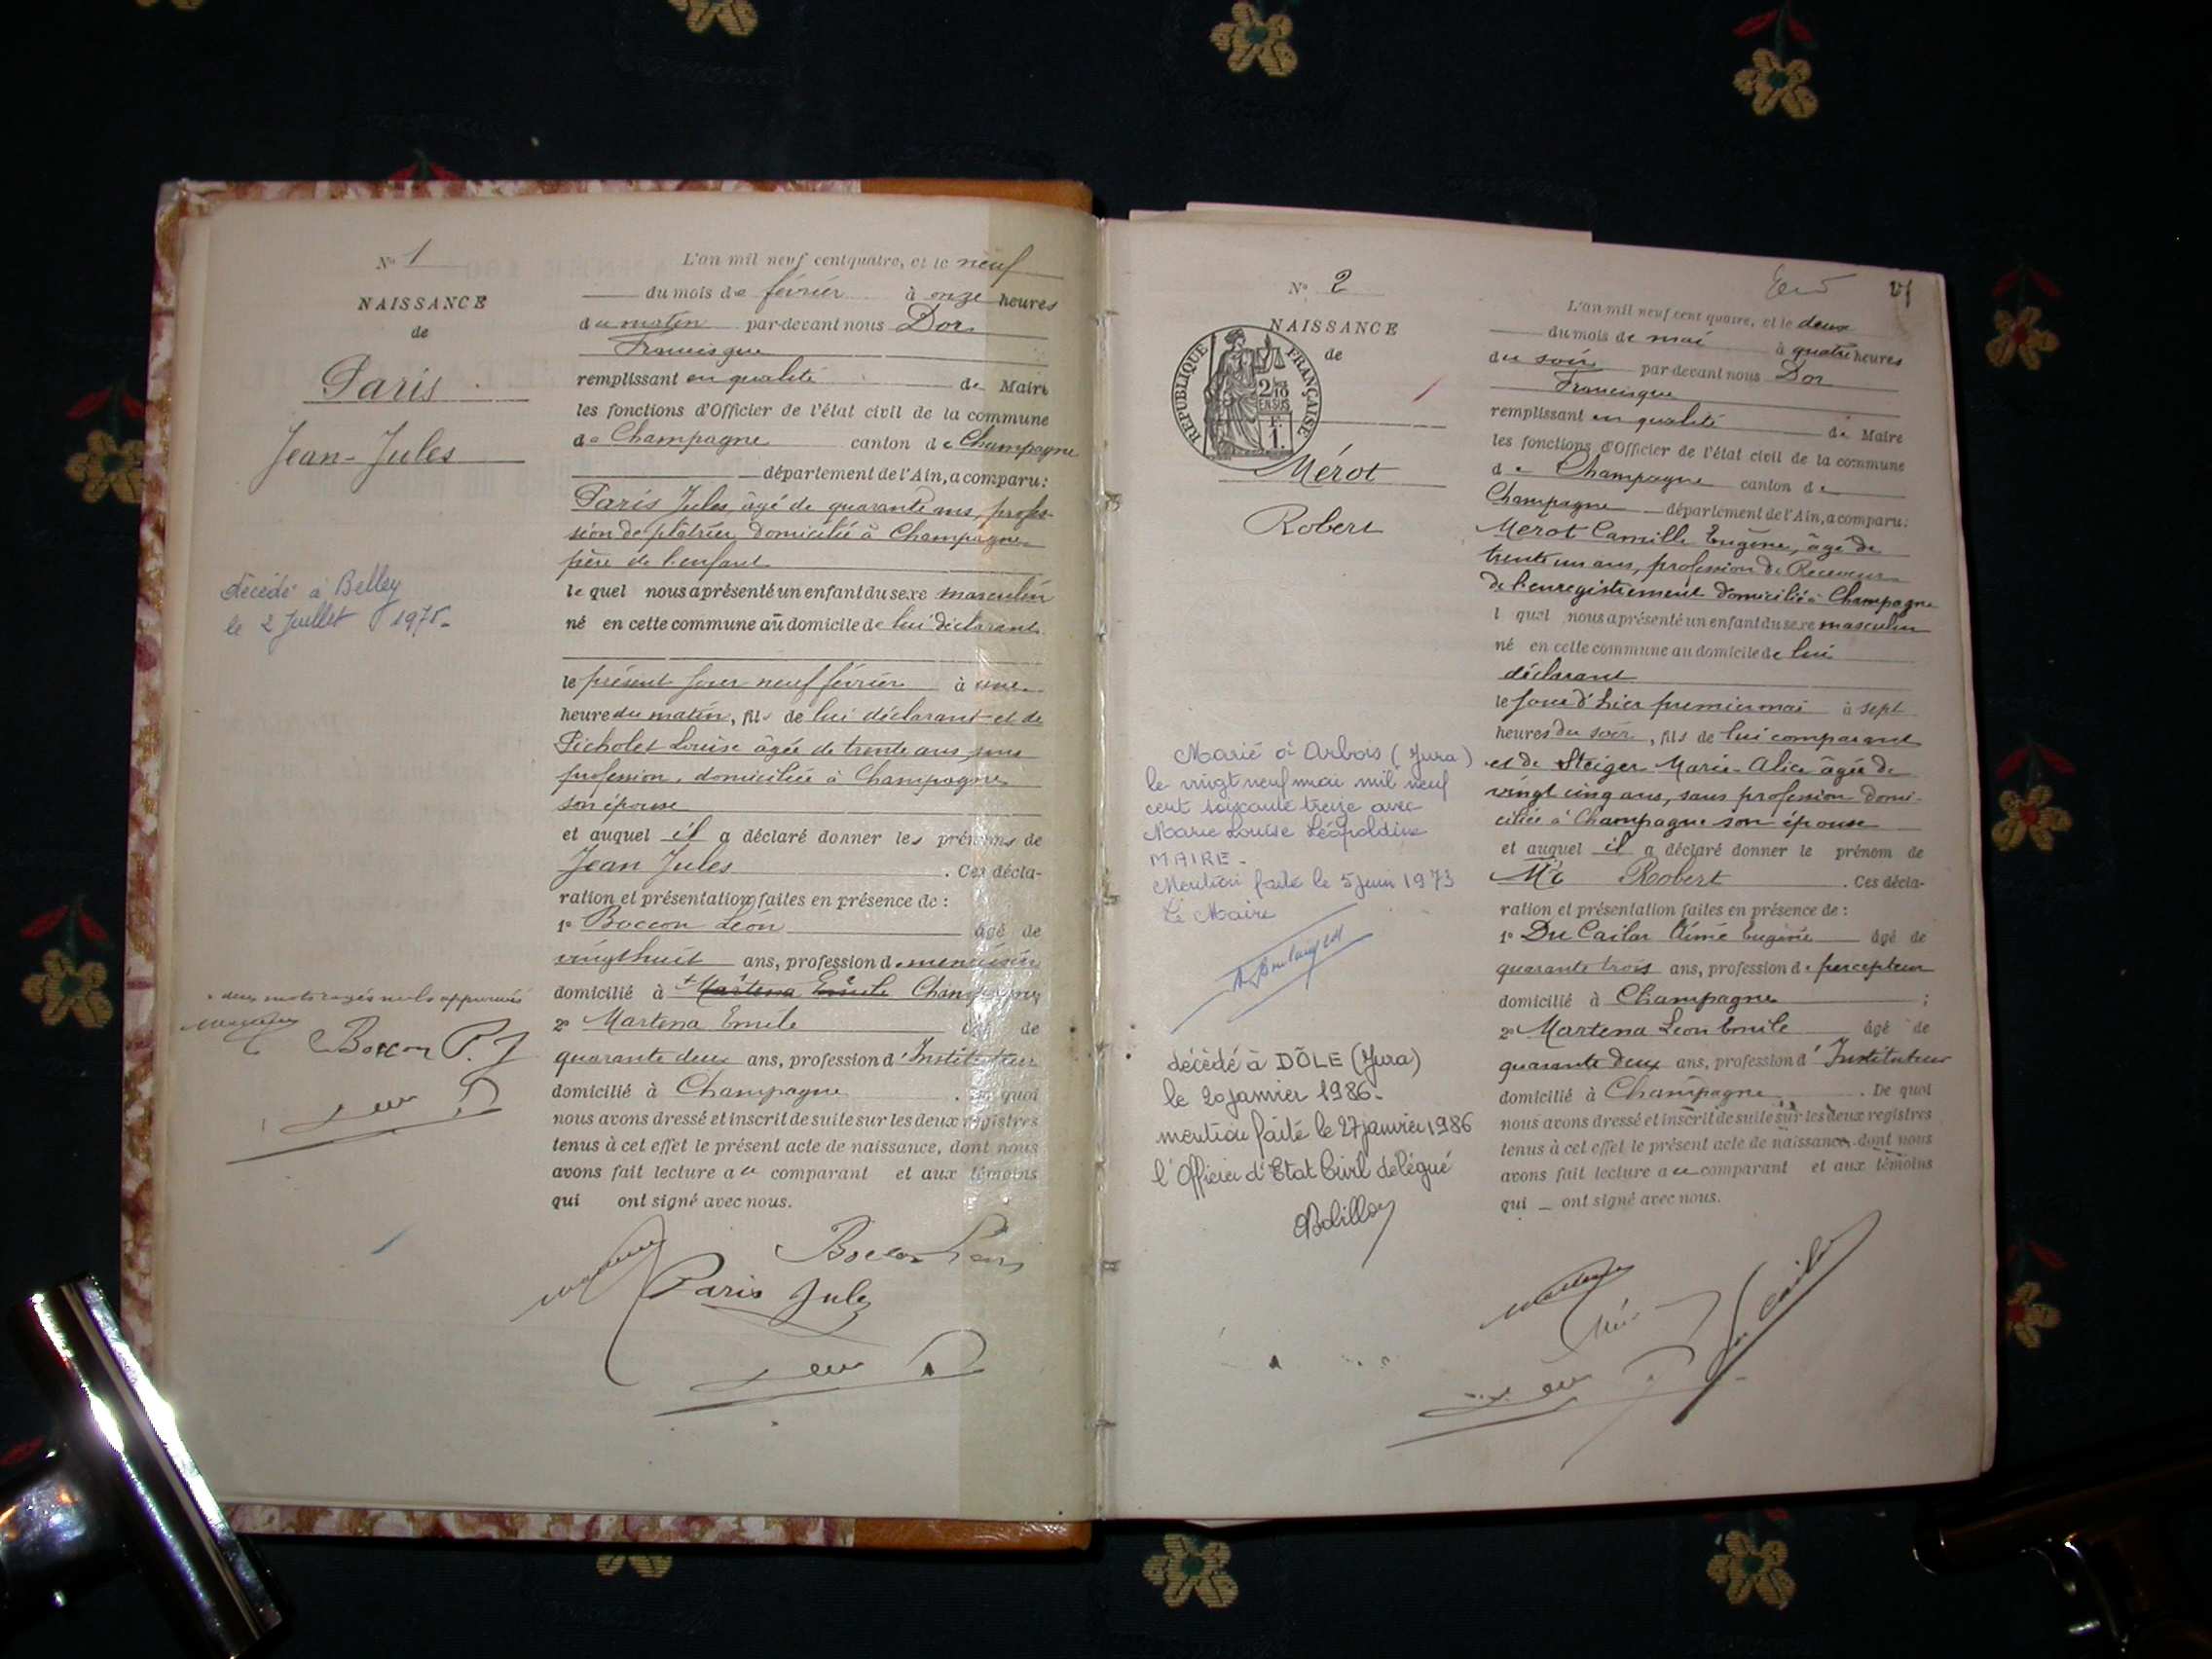 N° 1
NAISSANCE
de
Paris
Jean-Jules
décédé à Belley
le 2 Juillet 1975.
deux mots rayés nuls approuvés
L'an mil neuf cent quatre, et le neuf
du mois de février à onze heures
du matin par-devant nous Dor
Francisque
remplissant en qualité de Maire
les fonctions d'Officier de l'état civil de la commune
de Champagne canton de Champagne
département de l'Ain, a comparu:
Paris Jules, âgé de quarante ans, profes-
sion de plâtrier domicilié à Champagne
père de l'enfant
le quel nous a présenté un enfant du sexe masculin
né en cette commune au domicile de lui déclarant
le présent jour neuf février à une
heure du matin, fils de lui déclarant et de
Picholet Louise âgée de trente ans, sans
profession, domiciliée à Champagne
son épouse
et auquel il a déclaré donner les prénoms de
Jean Jules . Ces décla-
ration et présentation faites en présence de :
1° Boccon Léon âgé de
vingt huit ans, profession de menuisier
domicilié à Martena Emile Champagne
2° Martena Emile âgé de
quarante deux ans, profession d'Instituteur
domicilié à Champagne . De quoi
nous avons dressé et inscrit de suite sur les deux registres
tenus à cet effet le présent acte de naissance, dont nous
avons fait lecture au comparant et aux témoins
qui ont signé avec nous.
Boccon Léon
Paris Jules
N° 2
NAISSANCE
de
RÉPUBLIQUE FRANÇAISE
2/10
EN SUS
1.
Mérot
Robert
Marié à Arbois (Jura)
le vingt neuf mai mil neuf
cent soixante treize avec
Marie Louise Léopoldine
MAIRE.
Mention faite le 5 juin 1973
Le Maire
décédé à DÔLE (Jura)
le 20 janvier 1986.
mention faite le 27 janvier 1986
l'Officier d'Etat Civil délégué
L'an mil neuf cent quatre, et le deux
du mois de mai à quatre heures
du soir par-devant nous Dor
Francisque
remplissant en qualité de Maire
les fonctions d'Officier de l'état civil de la commune
de Champagne canton de
Champagne département de l'Ain, a comparu:
Mérot Camille Eugène, âgé de
trente un ans, profession de Receveur
de l'enregistrement domicilié à Champagne
l quel nous a présenté un enfant du sexe masculin
né en cette commune au domicile de lui
déclarant
le jour d'hier premier mai à sept
heures du soir, fils de lui comparant
et de Steiger Marie-Alice âgée de
vingt cinq ans, sans profession domi-
ciliée à Champagne son épouse
et auquel il a déclaré donner le prénom de
Robert . Ces décla-
ration et présentation faites en présence de :
1° Du Cailar Aimé Eugène âgé de
quarante trois ans, profession de percepteur
domicilié à Champagne ;
2° Martena Léon Emile âgé de
quarante deux ans, profession d'Instituteur
domicilié à Champagne . De quoi
nous avons dressé et inscrit de suite sur les deux registres
tenus à cet effet le présent acte de naissance, dont nous
avons fait lecture au comparant et aux témoins
qui ont signé avec nous.